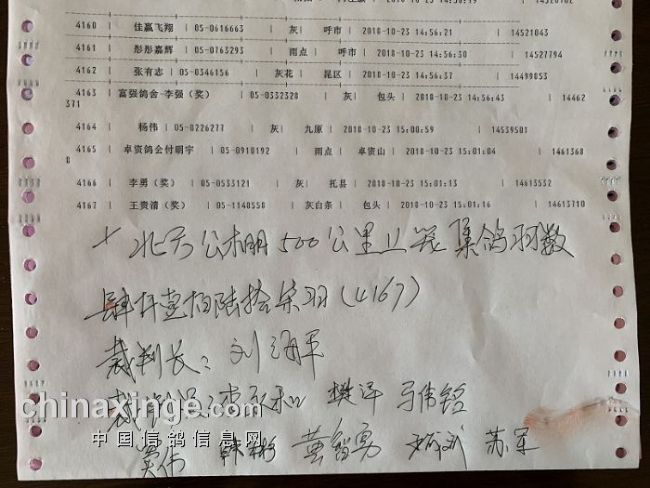 4160 | 佳赢飞翔 | 05-0616663 | 灰 | 呼市 | 2018-10-23 14:56:21 | 14521043
4161 | 彤彤嘉辉 | 05-0763293 | 雨点 | 呼市 | 2018-10-23 14:56:30 | 14527794
4162 | 张有志 | 05-0346156 | 灰花 | 昆区 | 2018-10-23 14:56:37 | 14499853
4163 | 富强鸽舍-李强(奖) | 05-0332328 | 灰 | 包头 | 2018-10-23 14:56:43 | 14462
371
4164 | 杨伟 | 05-0226277 | 灰 | 九原 | 2018-10-23 15:00:59 | 14539501
4165 | 卓资鸽会付明宇 | 05-0910192 | 雨点 | 卓资山 | 2018-10-23 15:01:04 | 1461368
8
4166 | 李勇(奖) | 05-0533121 | 灰 | 托县 | 2018-10-23 15:01:13 | 14613532
4167 | 王贵清(奖) | 05-1140558 | 灰白条 | 包头 | 2018-10-23 15:01:16 | 14613710
北方公棚500公里上笼集鸽羽数
肆仟壹佰陆拾柒羽(4167)
裁判长:刘海军
裁判员:李永和 樊泽 马伟铭
chinaxinge.com
中国信鸽信息网
黄伟 韩彬 黄智勇 苏军